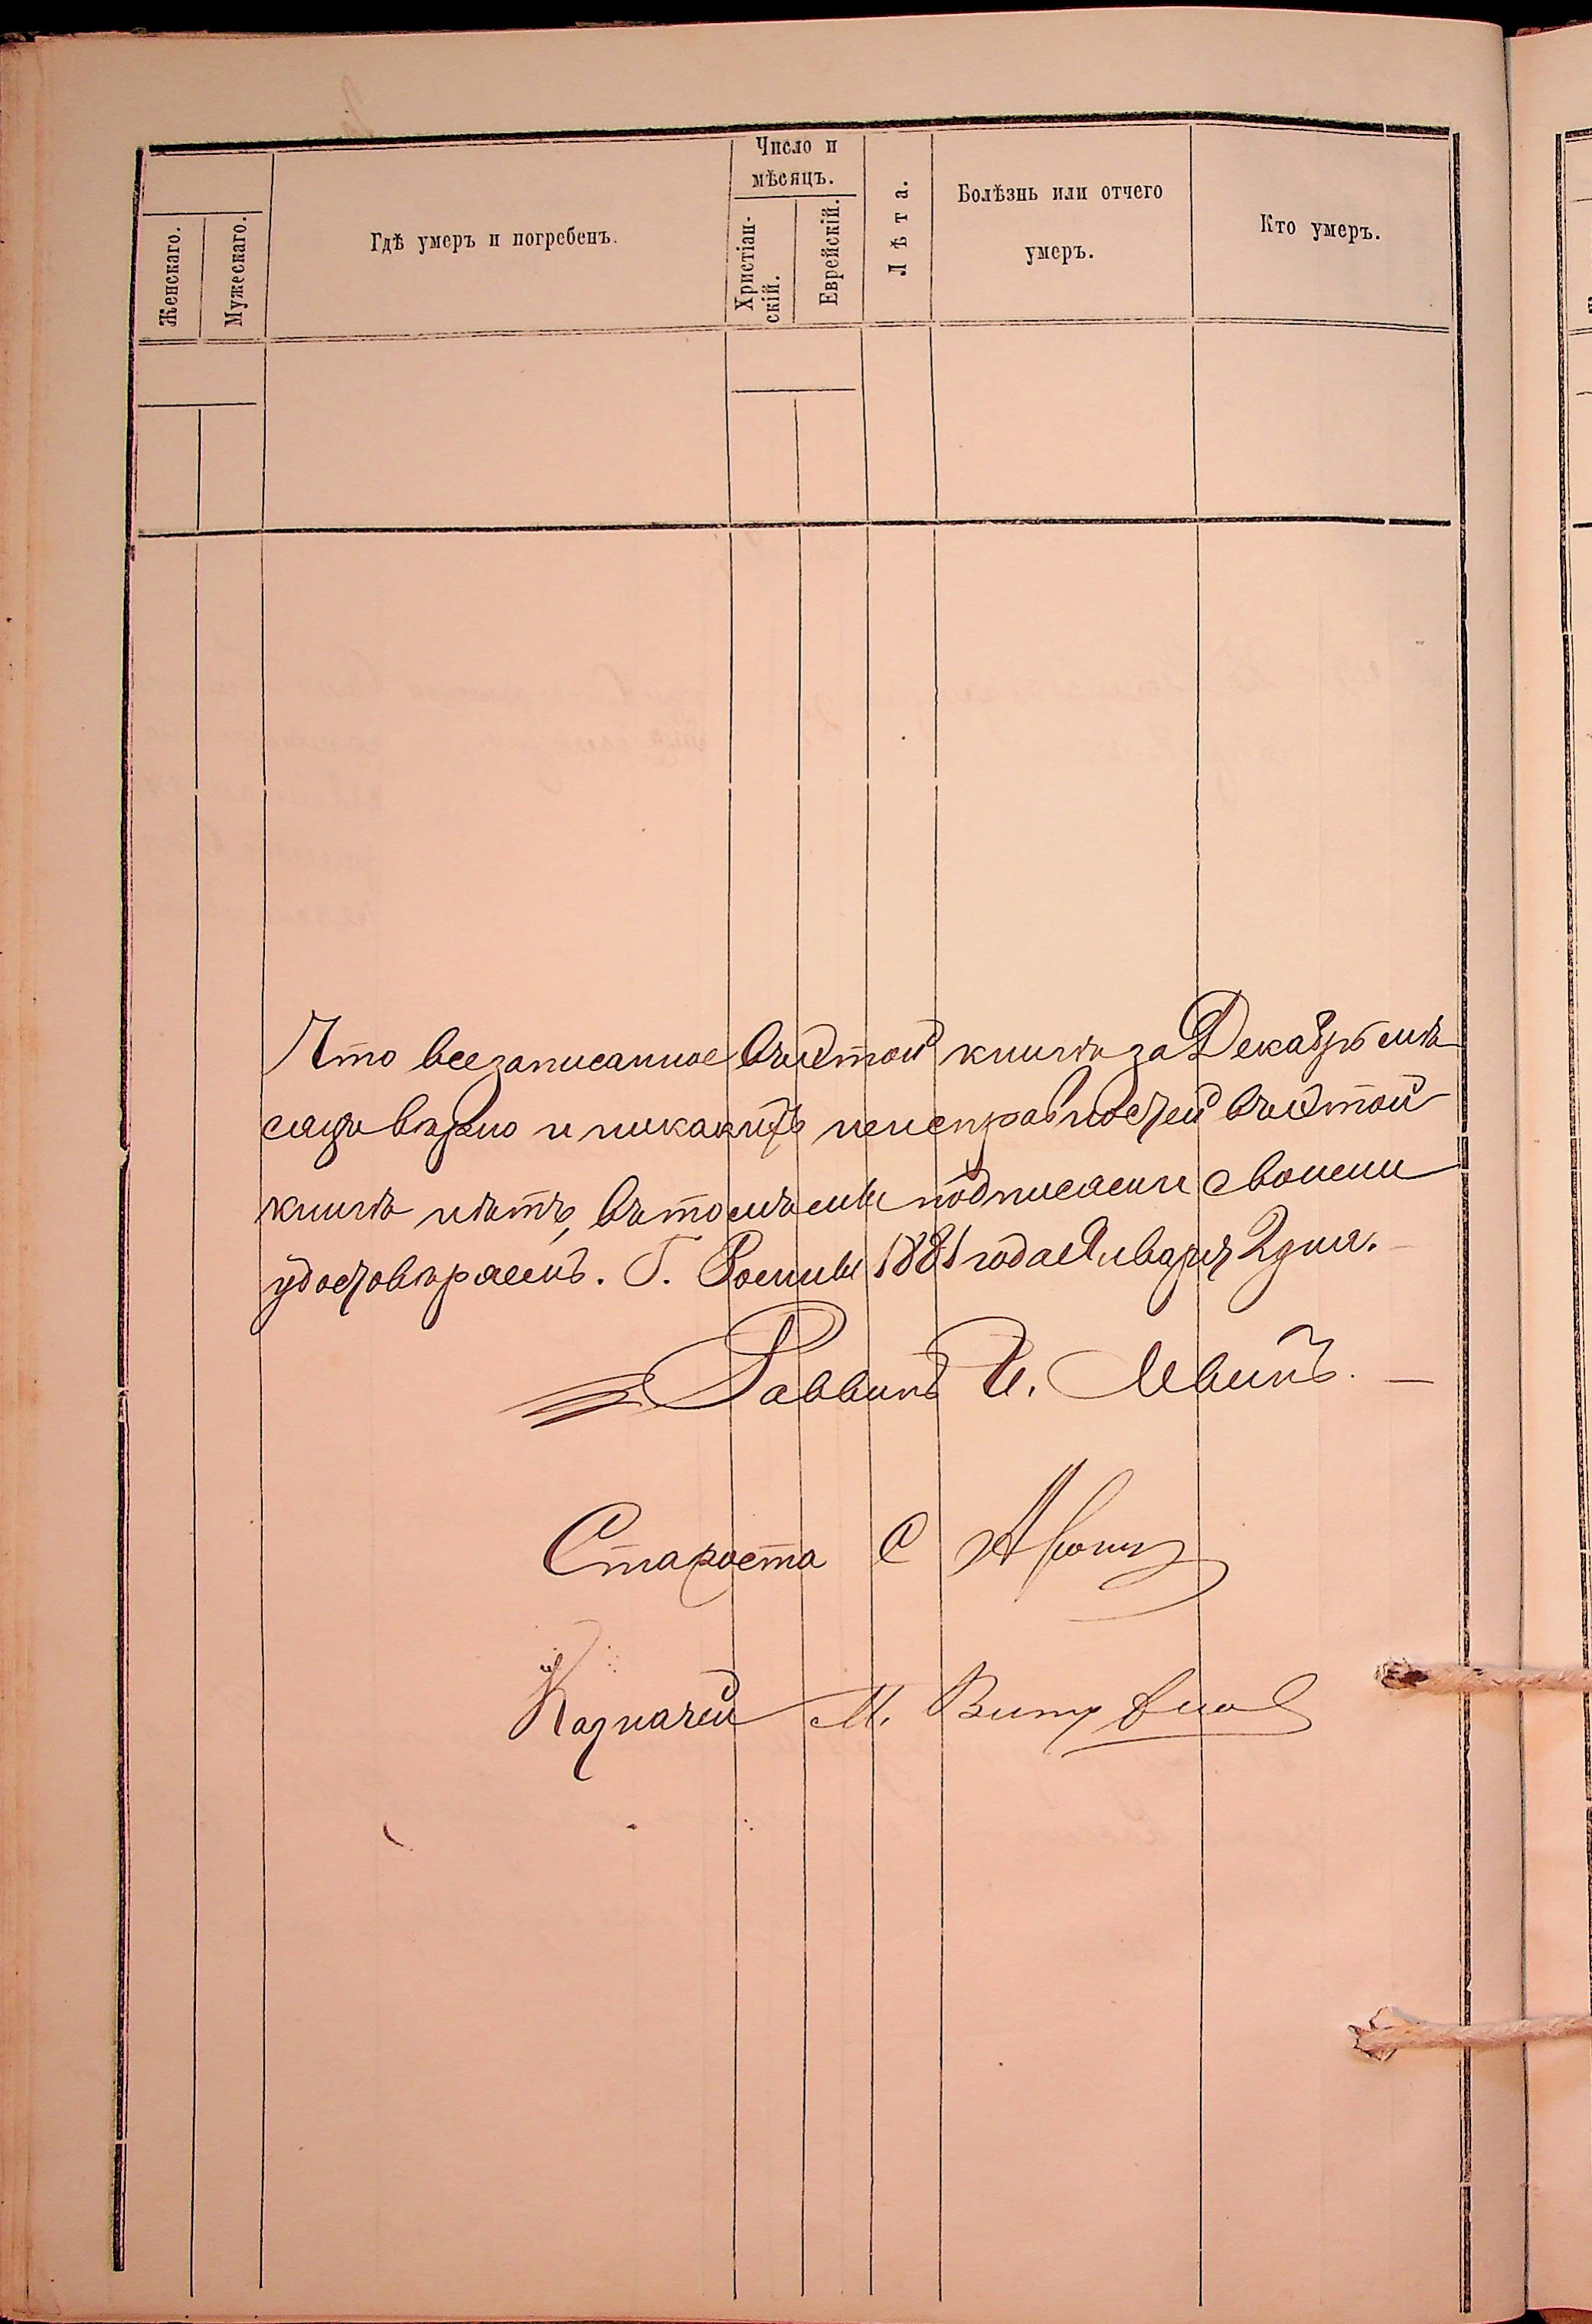 Число и
мѣсяцъ.
Женскаго.
Мужескаго.
Гдѣ умеръ и погребенъ.
Христіан-
скій.
Еврейскій.
Лѣта.
Болѣзнь или отчего
умеръ.
Кто умеръ.
Что все записанное въ этой книгѣ за Декабрь мѣ
сяцъ вѣрно и никакихъ неисправностей въ этой
книгѣ нѣтъ, въ томъ мы подписами своими
удостовѣряемъ. Г. Ромны 1881 года Января 2 дня.
Раввинъ И. Левинъ.
Староста С
Казначей М.